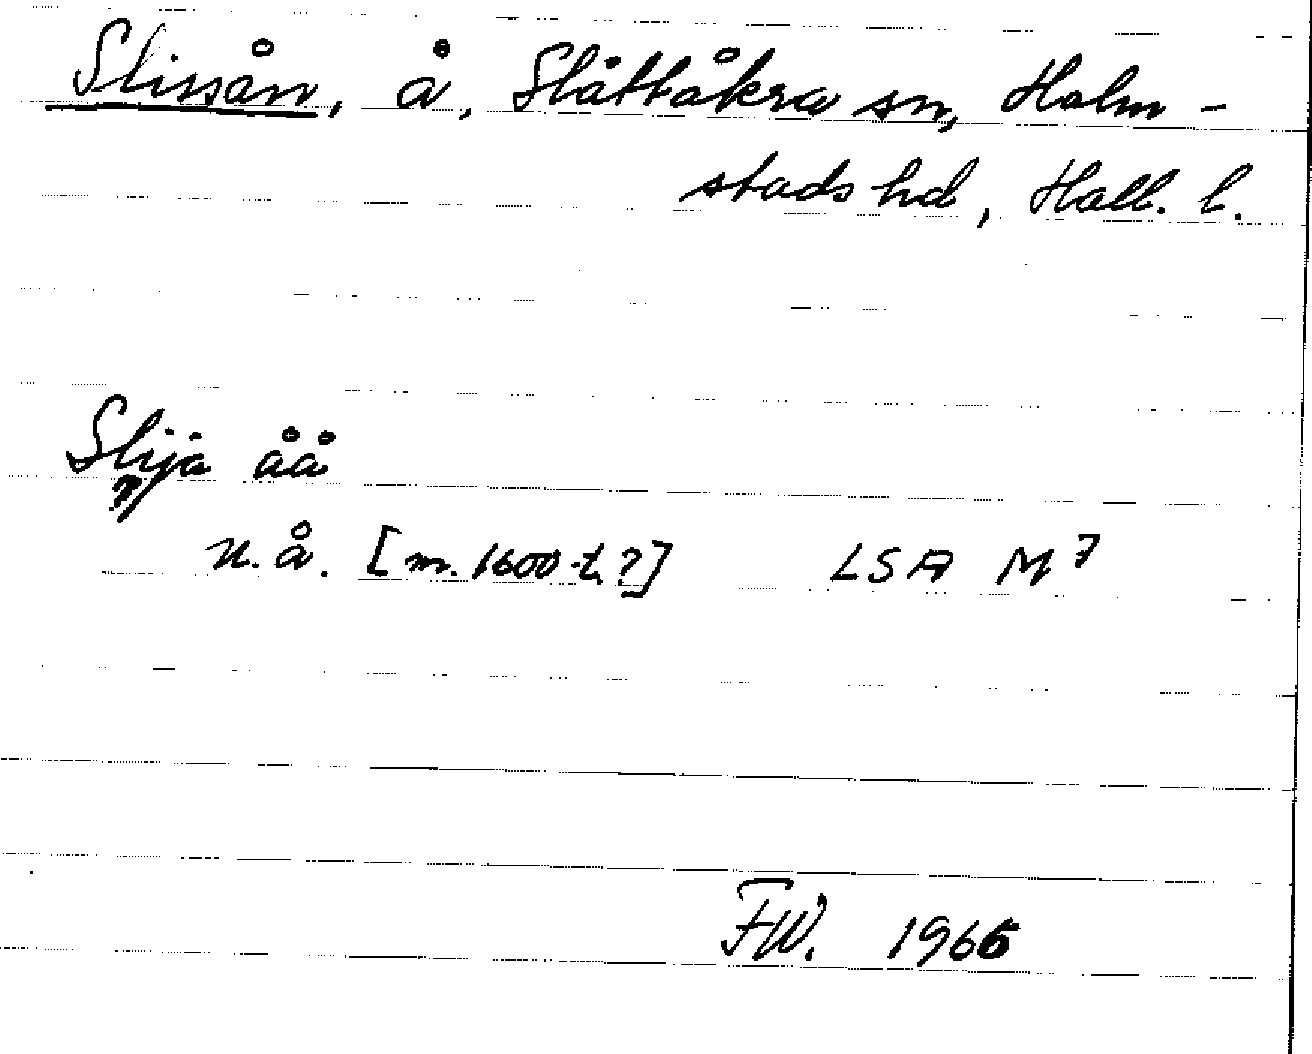 Slissån, å, Slättåkra sn, Halm-
stads hd, Hall. l.
Slija åå
u.å. [m. 1600-t.?] LSA M7
FW. 1966